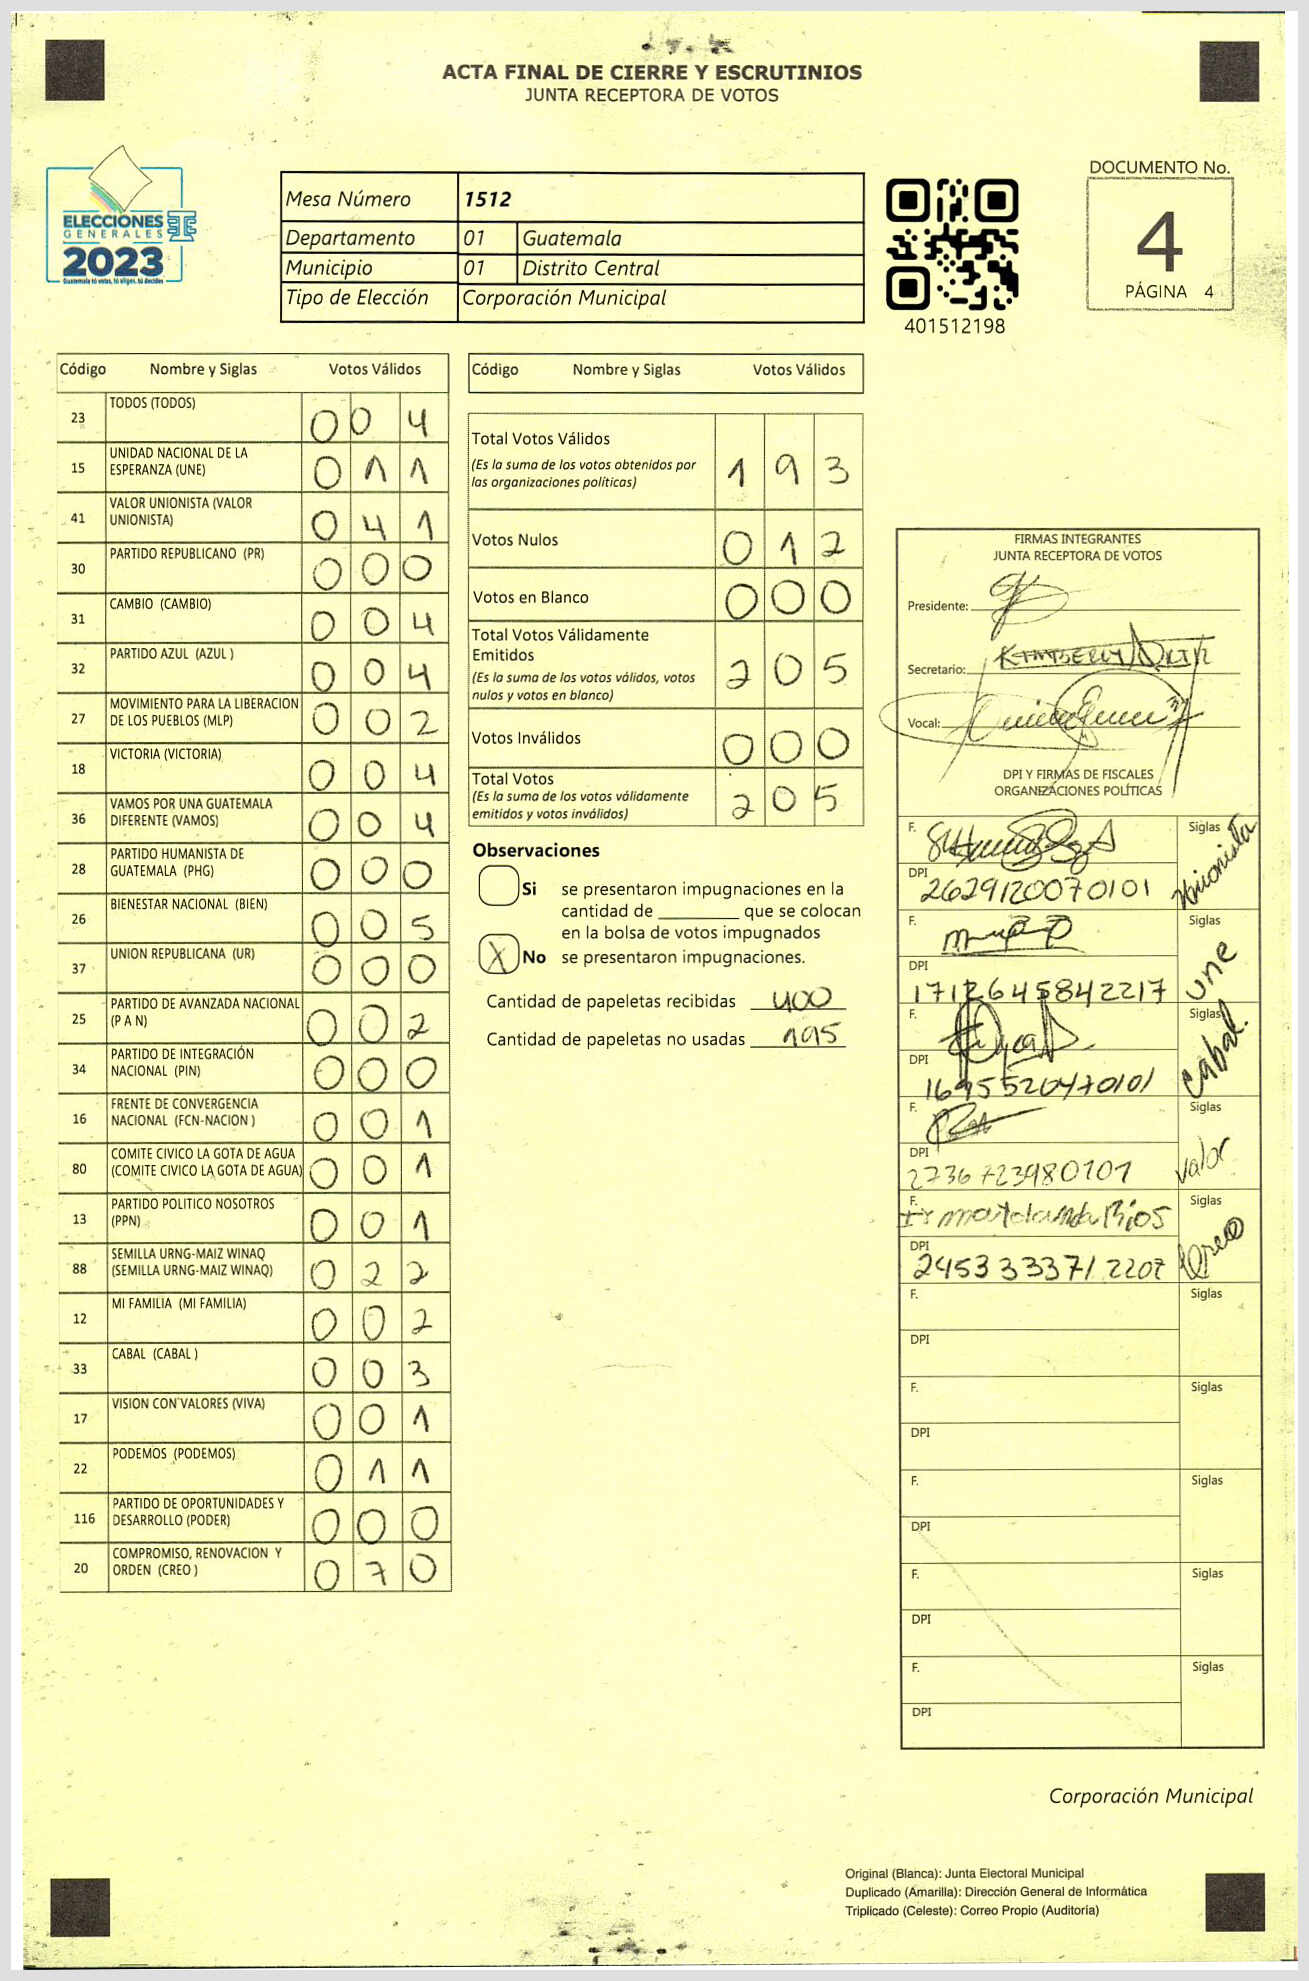 ACTA FINAL DE CIERRE Y ESCRUTINIOS
JUNTA RECEPTORA DE VOTOS
ELECCIONES
GENERALES
2023
Guatemala tú votas, tú eliges, tú decides
Mesa Número 1512
Departamento 01 Guatemala
Municipio 01 Distrito Central
Tipo de Elección Corporación Municipal
401512198
DOCUMENTO No.
4
PÁGINA 4
Código Nombre y Siglas Votos Válidos
23 TODOS (TODOS) 0 0 4
15 UNIDAD NACIONAL DE LA ESPERANZA (UNE) 0 1 1
41 VALOR UNIONISTA (VALOR UNIONISTA) 0 4 1
30 PARTIDO REPUBLICANO (PR) 0 0 0
31 CAMBIO (CAMBIO) 0 0 4
32 PARTIDO AZUL (AZUL ) 0 0 4
27 MOVIMIENTO PARA LA LIBERACION DE LOS PUEBLOS (MLP) 0 0 2
18 VICTORIA (VICTORIA) 0 0 4
36 VAMOS POR UNA GUATEMALA DIFERENTE (VAMOS) 0 0 4
28 PARTIDO HUMANISTA DE GUATEMALA (PHG) 0 0 0
26 BIENESTAR NACIONAL (BIEN) 0 0 5
37 UNION REPUBLICANA (UR) 0 0 0
25 PARTIDO DE AVANZADA NACIONAL (P A N) 0 0 2
34 PARTIDO DE INTEGRACIÓN NACIONAL (PIN) 0 0 0
16 FRENTE DE CONVERGENCIA NACIONAL (FCN-NACION ) 0 0 1
80 COMITE CIVICO LA GOTA DE AGUA (COMITE CIVICO LA GOTA DE AGUA) 0 0 1
13 PARTIDO POLITICO NOSOTROS (PPN) 0 0 1
88 SEMILLA URNG-MAIZ WINAQ (SEMILLA URNG-MAIZ WINAQ) 0 2 2
12 MI FAMILIA (MI FAMILIA) 0 0 2
33 CABAL (CABAL ) 0 0 3
17 VISION CON VALORES (VIVA) 0 0 1
22 PODEMOS (PODEMOS) 0 1 1
116 PARTIDO DE OPORTUNIDADES Y DESARROLLO (PODER) 0 0 0
20 COMPROMISO, RENOVACION Y ORDEN (CREO ) 0 7 0
Código Nombre y Siglas Votos Válidos
Total Votos Válidos 1 9 3
(Es la suma de los votos obtenidos por
las organizaciones políticas)
Votos Nulos 0 1 2
Votos en Blanco 0 0 0
Total Votos Válidamente
Emitidos 2 0 5
(Es la suma de los votos válidos, votos
nulos y votos en blanco)
Votos Inválidos 0 0 0
Total Votos 2 0 5
(Es la suma de los votos válidamente
emitidos y votos inválidos)
Observaciones
Si se presentaron impugnaciones en la
cantidad de ________ que se colocan
en la bolsa de votos impugnados
X No se presentaron impugnaciones.
Cantidad de papeletas recibidas 400
Cantidad de papeletas no usadas 195
FIRMAS INTEGRANTES
JUNTA RECEPTORA DE VOTOS
Presidente:
Secretario:
Vocal:
DPI Y FIRMAS DE FISCALES
ORGANIZACIONES POLÍTICAS
F. Siglas Unionista
DPI 2629120070101
F. Siglas une
DPI 1712645842217
F. Siglas Cabal
DPI 1695520470101
F. Siglas valor
DPI 2736723980101
F. Siglas Creo
DPI 2453333712207
F. Siglas
DPI
F. Siglas
DPI
F. Siglas
DPI
F. Siglas
DPI
F. Siglas
DPI
Corporación Municipal
Original (Blanca): Junta Electoral Municipal
Duplicado (Amarilla): Dirección General de Informática
Triplicado (Celeste): Correo Propio (Auditoría)